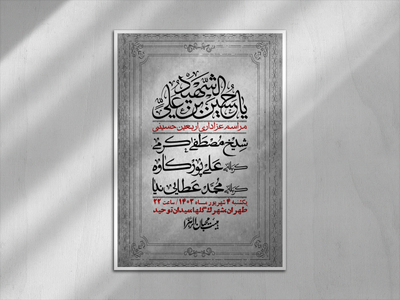 یا حسین بن علی الشهید
مراسم عزاداری اربعین حسینی
شیخ مصطفی کرمی
کربلایی علی پورکاوه
کربلایی محمد عطایی نیا
یکشنبه ۴ شهریور ماه ۱۴۰۳ / ساعت ۲۲
طهران، شهرک گلها میدان توحید